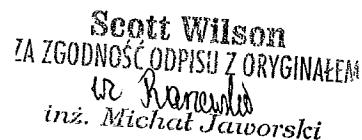 Scott Wilson
ZA ZGODNOŚĆ ODPISU Z ORYGINAŁEM
inż. Michał Jaworski